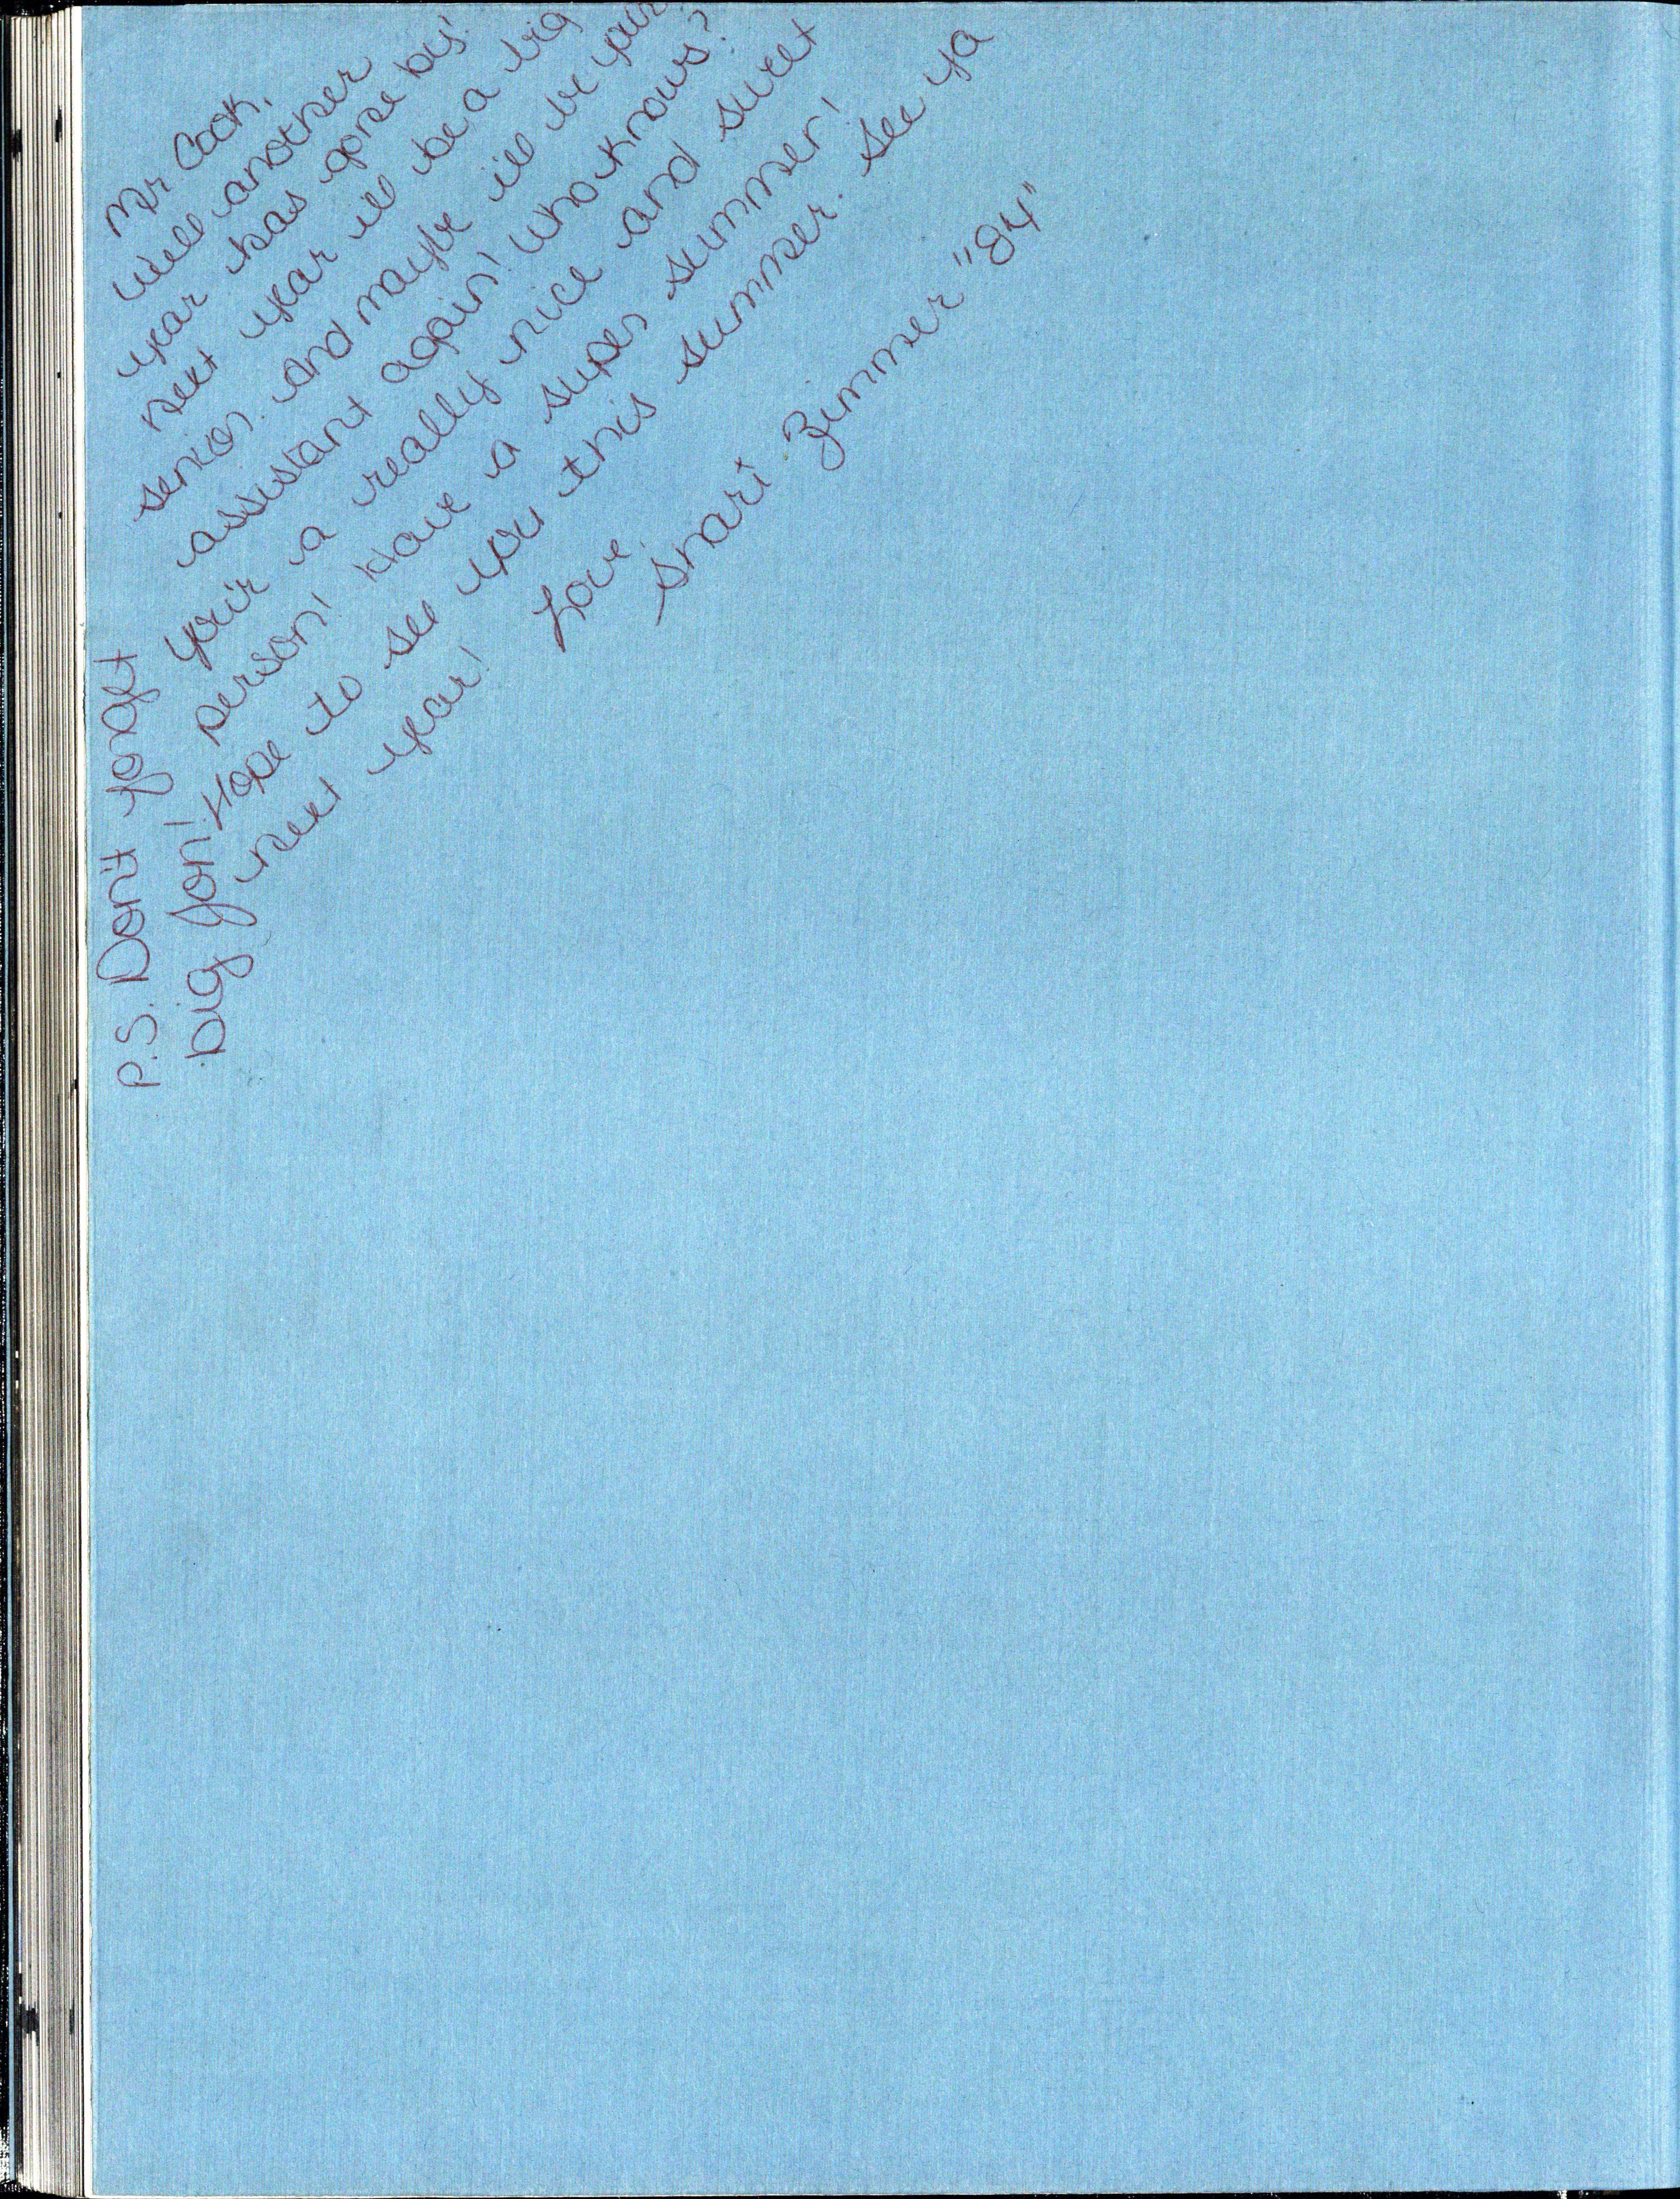 Mr Cook,
Well another
year has gone by!
next year ill be a big
senior. And maybe ill be your
assistant again! Who knows?
Your a really nice and sweet
person! Have a super summer!
Hope to see you this summer. See ya
next year!
Love,
Shari Zimmer "84"
P.S. Don't forget
big Jon!